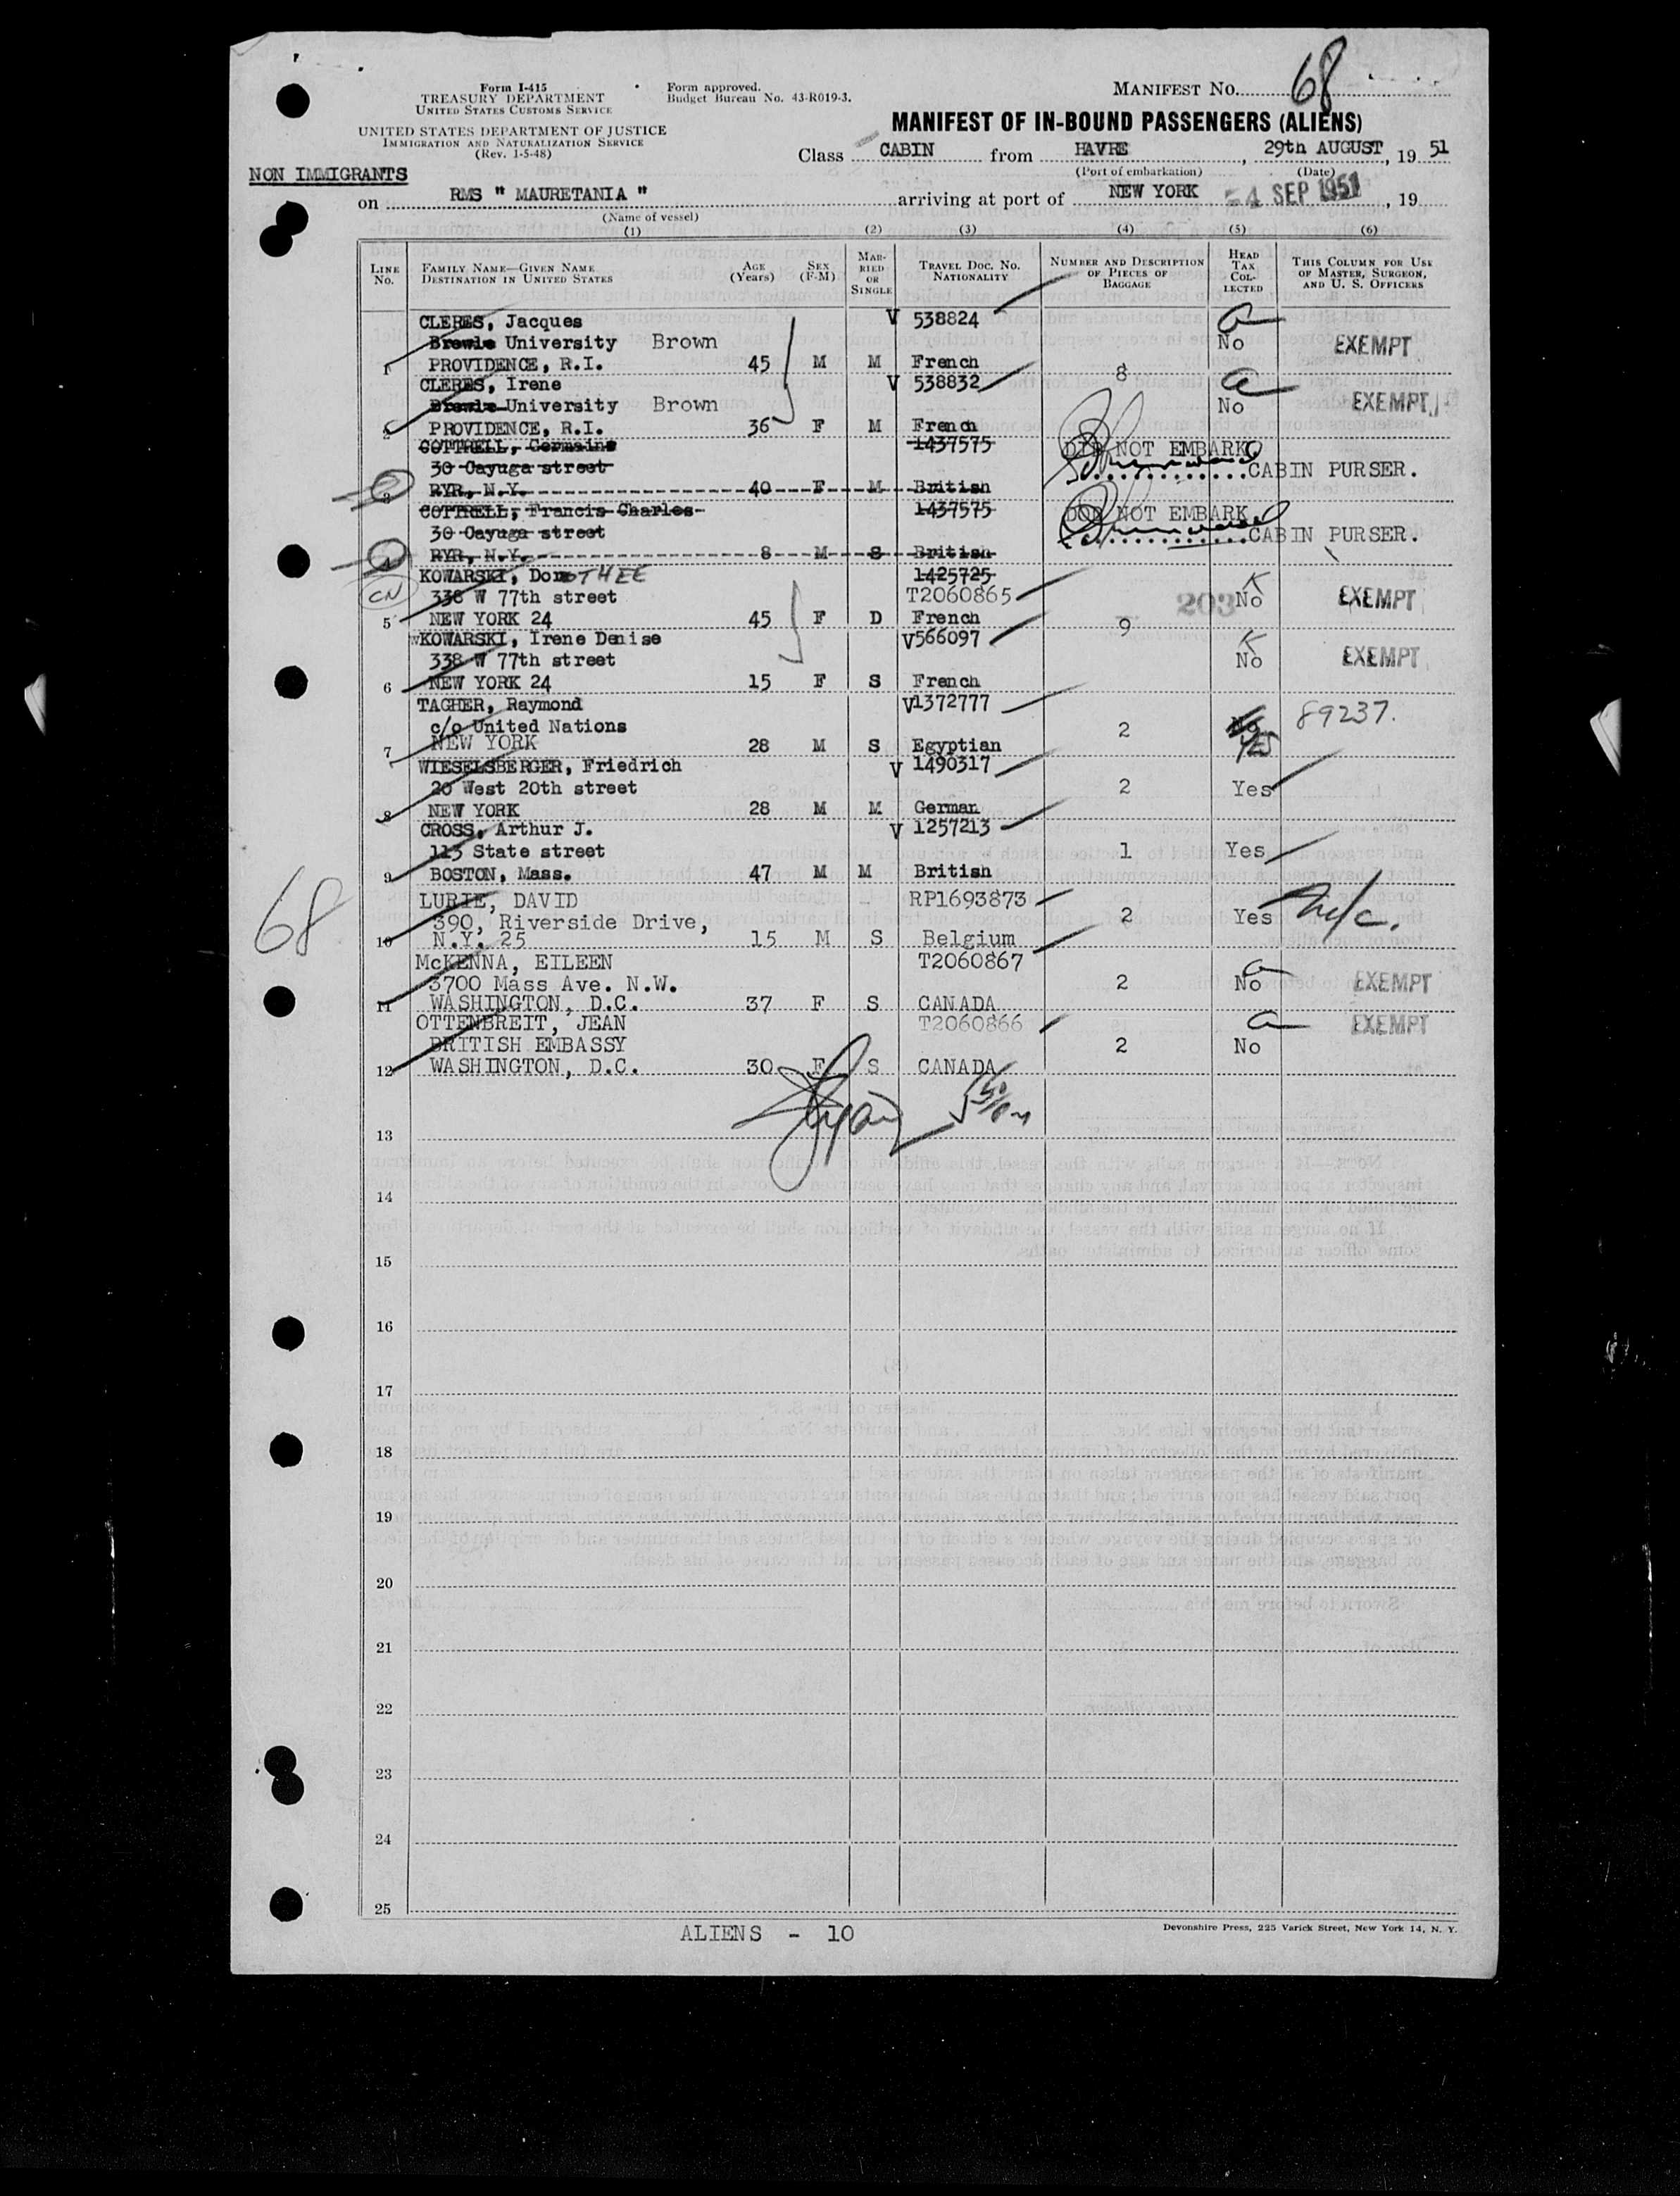 Form I-415
TREASURY DEPARTMENT
UNITED STATES CUSTOMS SERVICE
UNITED STATES DEPARTMENT OF JUSTICE
IMMIGRATION AND NATURALIZATION SERVICE
(Rev. 1-5-48)
Form approved.
Budget Bureau No. 43-R019-3.
MANIFEST NO. 68
MANIFEST OF IN-BOUND PASSENGERS (ALIENS)
Class CABIN from HAVRE, 29th AUGUST, 19 51
(Port of embarkation) (Date)
NON IMMIGRANTS
on RMS " MAURETANIA " arriving at port of NEW YORK 4 SEP 1951, 19
(Name of vessel)
(1) (2) (3) (4) (5) (6)
LINE NO.
FAMILY NAME—GIVEN NAME
DESTINATION IN UNITED STATES
AGE (YEARS)
SEX (F-M)
MARRIED OR SINGLE
TRAVEL DOC. NO.
NATIONALITY
NUMBER AND DESCRIPTION OF PIECES OF BAGGAGE
HEAD TAX COLLECTED
THIS COLUMN FOR USE OF MASTER, SURGEON, AND U. S. OFFICERS
CLERES, Jacques V 538824
University Brown No EXEMPT
1 PROVIDENCE, R.I. 45 M M French 8
CLERES, Irene V 538832
University Brown No EXEMPT
2 PROVIDENCE, R.I. 36 F M French
COTTRELL, Germaine 1437575 DID NOT EMBARK
30 Cayuga street CABIN PURSER.
3 RYR, N.Y. 40 F M British
COTTRELL, Francis Charles 1437575 DOD NOT EMBARK
30 Cayuga street CABIN PURSER.
4 RYR, N.Y. 8 M S British
KOWARSKI, DoroTHEE 1425725 K
CN 338 W 77th street T2060865 203 No EXEMPT
5 NEW YORK 24 45 F D French 9
KOWARSKI, Irene Denise V566097 K
338 W 77th street No EXEMPT
6 NEW YORK 24 15 F S French
TAGHER, Raymond V1372777 89237.
c/o United Nations 2 No YES
7 NEW YORK 28 M S Egyptian
WIESELSBERGER, Friedrich V 1490317
20 West 20th street 2 Yes
8 NEW YORK 28 M M German
CROSS, Arthur J. V 1257213
113 State street 1 Yes
9 BOSTON, Mass. 47 M M British
68
LURIE, DAVID RP1693873
390, Riverside Drive, 2 Yes
10 N.Y. 25 15 M S Belgium
McKENNA, EILEEN T2060867
3700 Mass Ave. N.W. 2 No EXEMPT
11 WASHINGTON, D.C. 37 F S CANADA
OTTENBREIT, JEAN T2060866 EXEMPT
BRITISH EMBASSY 2 No
12 WASHINGTON, D.C. 30 F S CANADA
13
14
15
16
17
18
19
20
21
22
23
24
25
ALIENS - 10
Devonshire Press, 225 Varick Street, New York 14, N. Y.